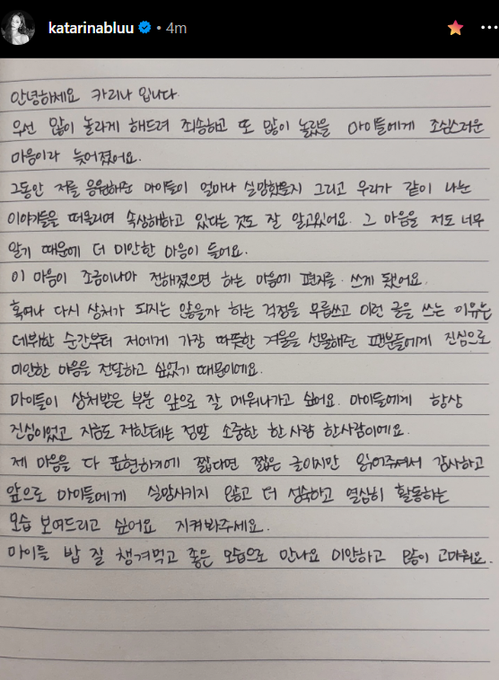 katarinabluu • 4m
안녕하세요 카리나 입니다
우선 많이 놀라게 해드려 죄송하고 또 많이 놀랐을 마이들에게 조심스러운
마음이라 늦어졌어요.
그동안 저를 응원해준 마이들이 얼마나 실망했을지 그리고 우리가 같이 나눈
이야기들을 떠올리며 속상해하고 있다는 것도 잘 알고있어요. 그 마음을 저도 너무
알기 때문에 더 미안한 마음이 들어요.
이 마음이 조금이나마 전해졌으면 하는 마음에 편지를 쓰게 됐어요.
혹여나 다시 상처가 되지는 않을까 하는 걱정을 무릅쓰고 이런 글을 쓰는 이유는
데뷔한 순간부터 저에게 가장 따뜻한 겨울을 선물해준 팬분들에게 진심으로
미안한 마음을 전달하고 싶었기 때문이에요.
마이들이 상처받은 부분 앞으로 잘 메워나가고 싶어요. 마이들에게 항상
진심이었고 지금도 저한테는 정말 소중한 한사람 한사람이에요.
제 마음을 다 표현하기에 짧다면 짧은 글이지만 읽어주셔서 감사하고
앞으로 마이들에게 실망시키지 않고 더 성숙하고 열심히 활동하는
모습 보여드리고 싶어요 지켜봐주세요.
마이들 밥 잘 챙겨먹고 좋은 모습으로 만나요 미안하고 많이 고마워요.